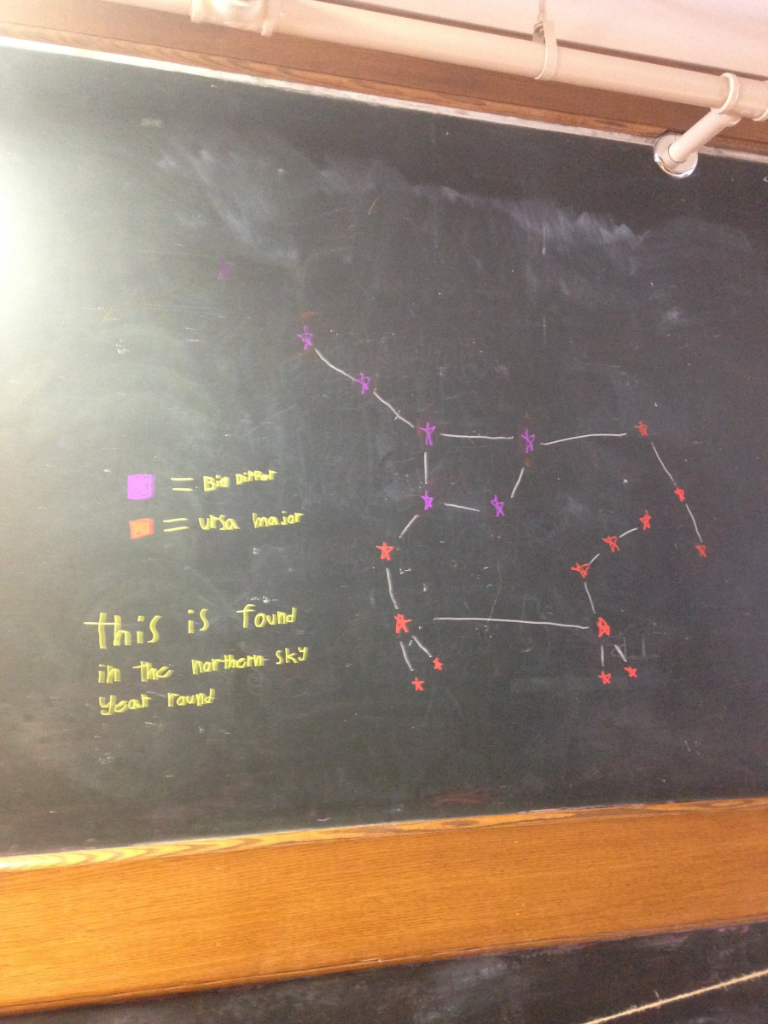 = Big Dipper
= ursa major
this is found
in the northern sky
year round